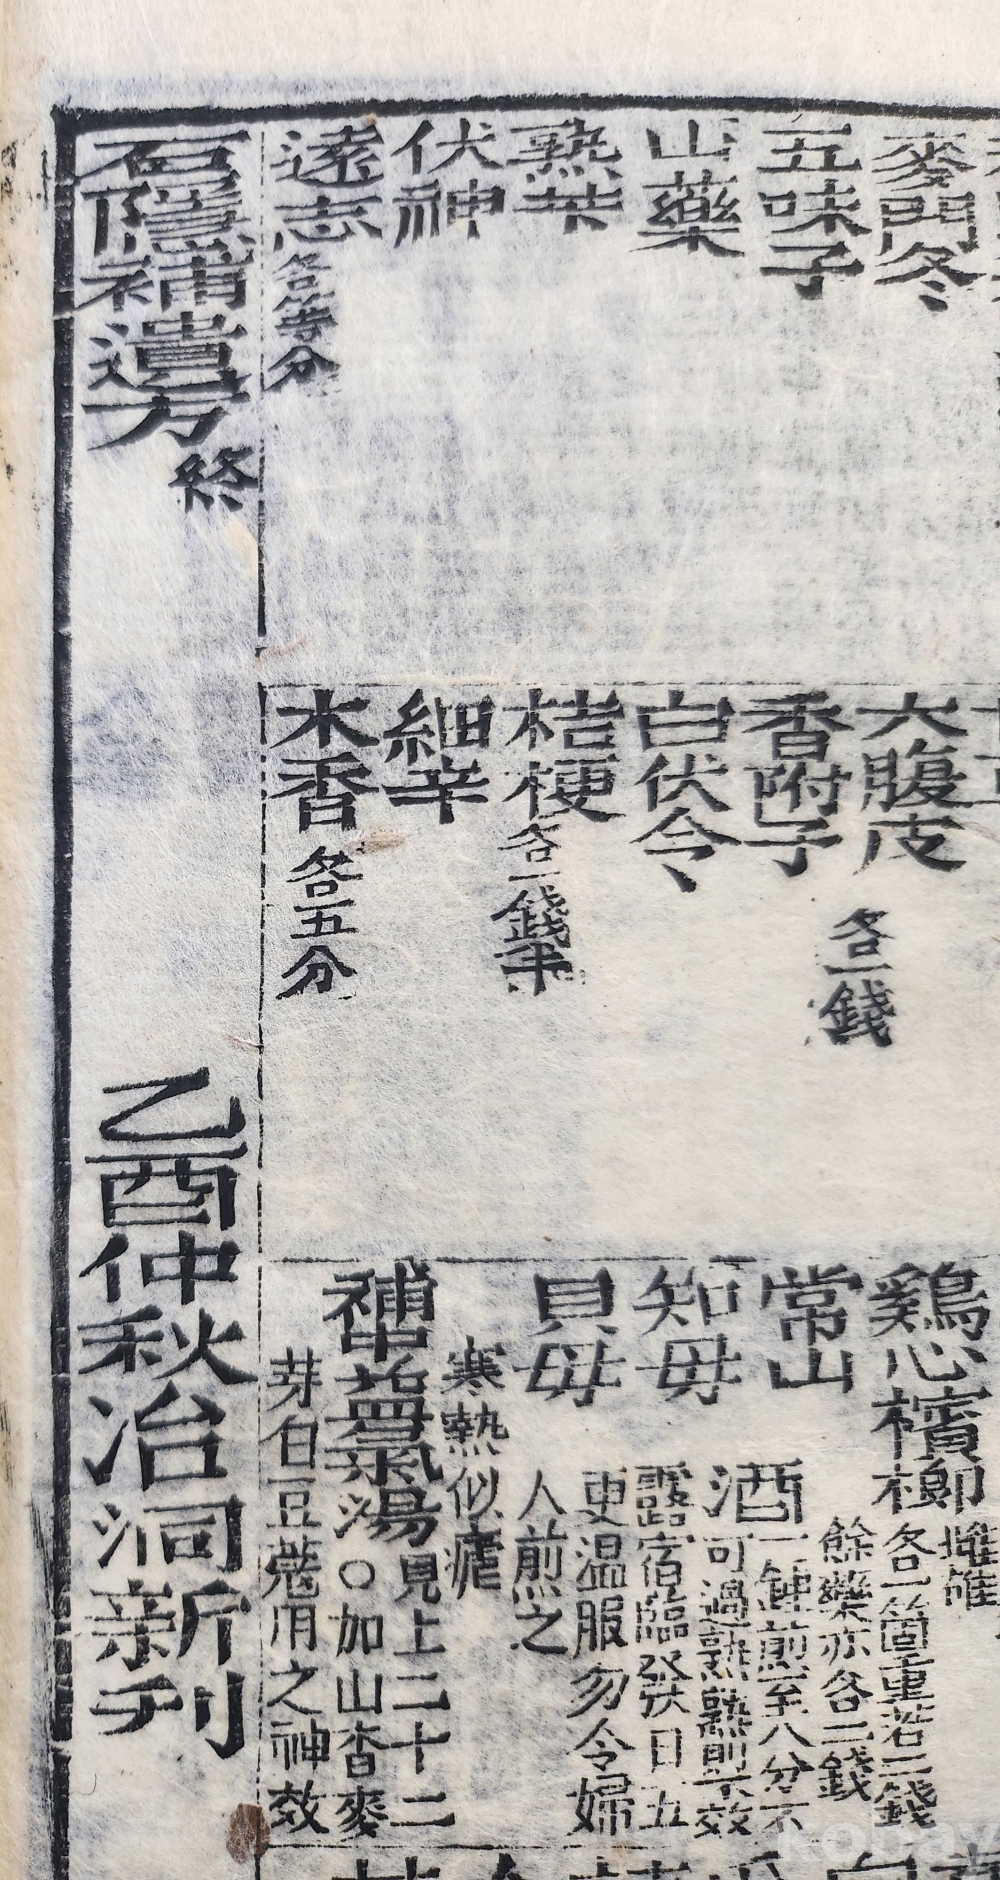 麥門冬
五味子
山藥
熟芐
伏神
遠志 各等分
大腹皮 各一錢
香附子
白伏令
桔梗 各一錢半
細辛
木香 各五分
雌雄
鷄心檳榔 各一箇重若三錢
餘藥亦各二錢
常山
酒一鍾煎至八分不
可過熟熟則不效
知母 露宿臨發日五
更温服勿令婦
貝母 人煎之
寒熱似瘧
補中益氣湯 見上二十二
○加山査麥
芽白豆蔲用之神效
石隱補遺方 終
乙酉仲秋冶洞新刊